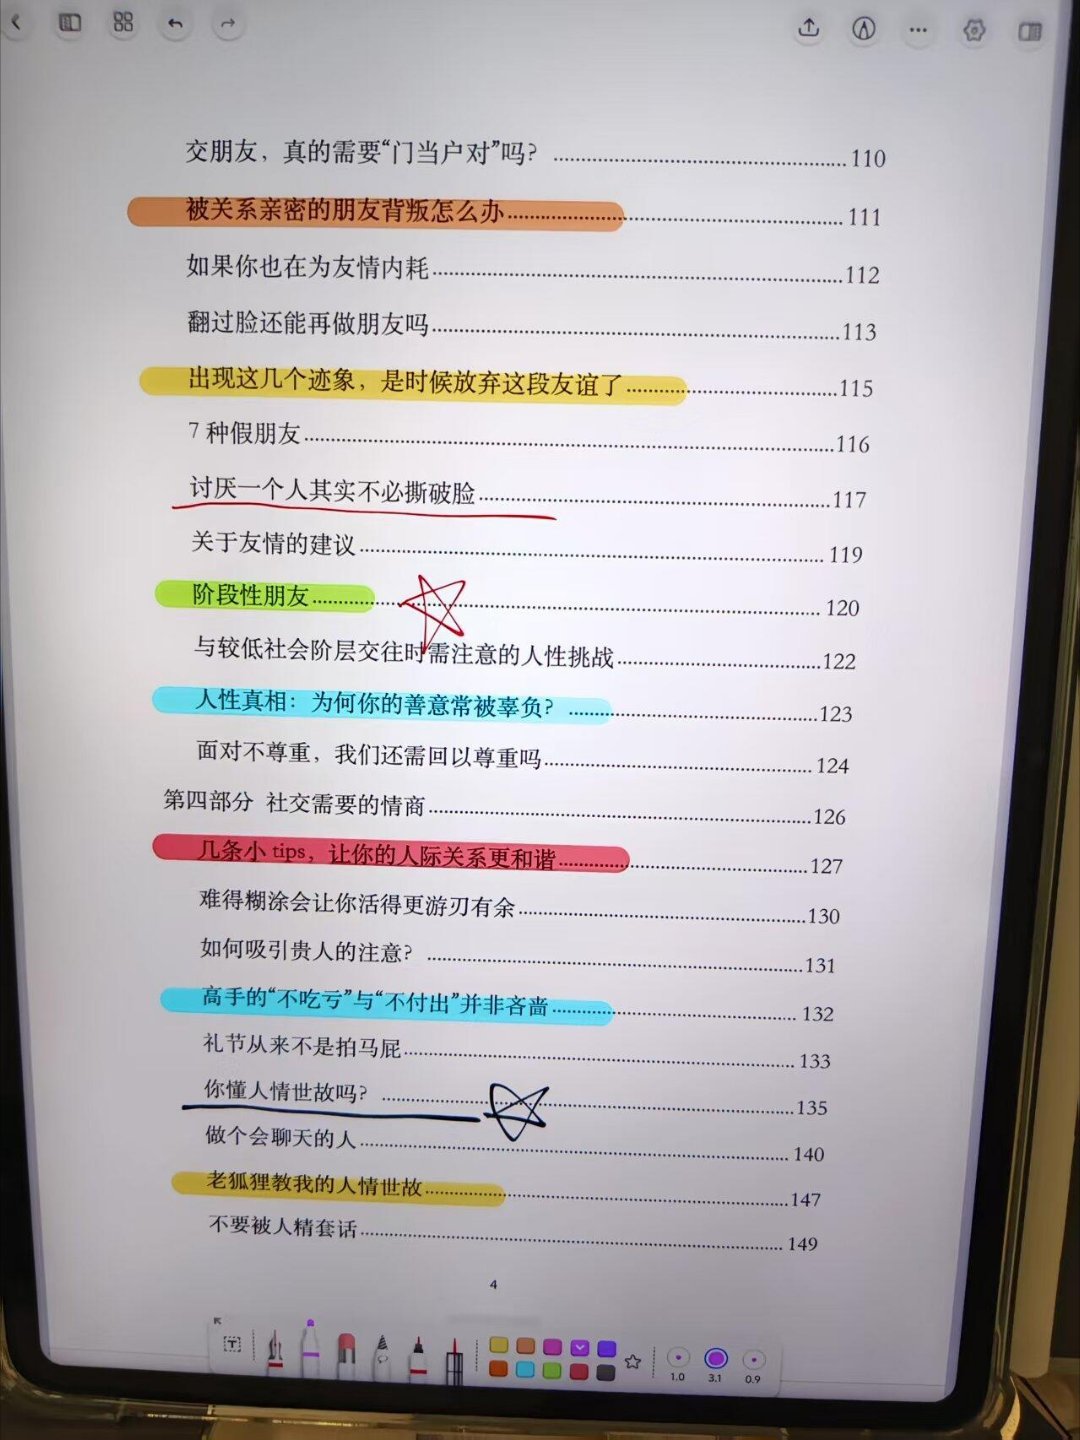 交朋友，真的需要“门当户对”吗？ ........................ 110
被关系亲密的朋友背叛怎么办 ........................ 111
如果你也在为友情内耗 ........................ 112
翻过脸还能再做朋友吗 ........................ 113
出现这几个迹象，是时候放弃这段友谊了 ........................ 115
7 种假朋友 ........................ 116
讨厌一个人其实不必撕破脸 ........................ 117
关于友情的建议 ........................ 119
阶段性朋友 ........................ 120
与较低社会阶层交往时需注意的人性挑战 ........................ 122
人性真相：为何你的善意常被辜负？ ........................ 123
面对不尊重，我们还需回以尊重吗 ........................ 124
第四部分 社交需要的情商 ........................ 126
几条小 tips，让你的人际关系更和谐 ........................ 127
难得糊涂会让你活得更游刃有余 ........................ 130
如何吸引贵人的注意？ ........................ 131
高手的“不吃亏”与“不付出”并非吝啬 ........................ 132
礼节从来不是拍马屁 ........................ 133
你懂人情世故吗？ ........................ 135
做个会聊天的人 ........................ 140
老狐狸教我的人情世故 ........................ 147
不要被人精套话 ........................ 149
4
T
1.0 3.1 0.9